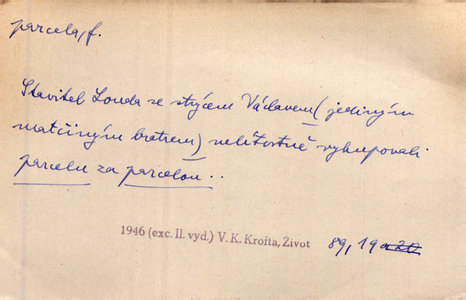 parcela, f.
Stavitel Louda se strýcem Václavem (jediným
matčiným bratrem) nelítostně vykupovali
parcelu za parcelou..
1946 (exc. II. vyd.) V. K. Krofta, Život 89, 19 a 20